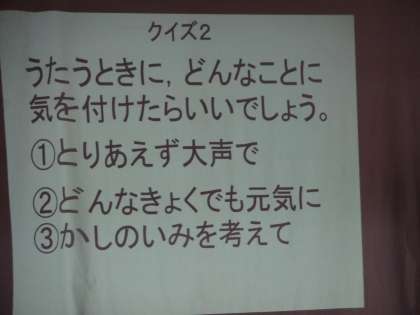 クイズ2
うたうときに，どんなことに
気を付けたらいいでしょう。
①とりあえず大声で
②どんなきょくでも元気に
③かしのいみを考えて